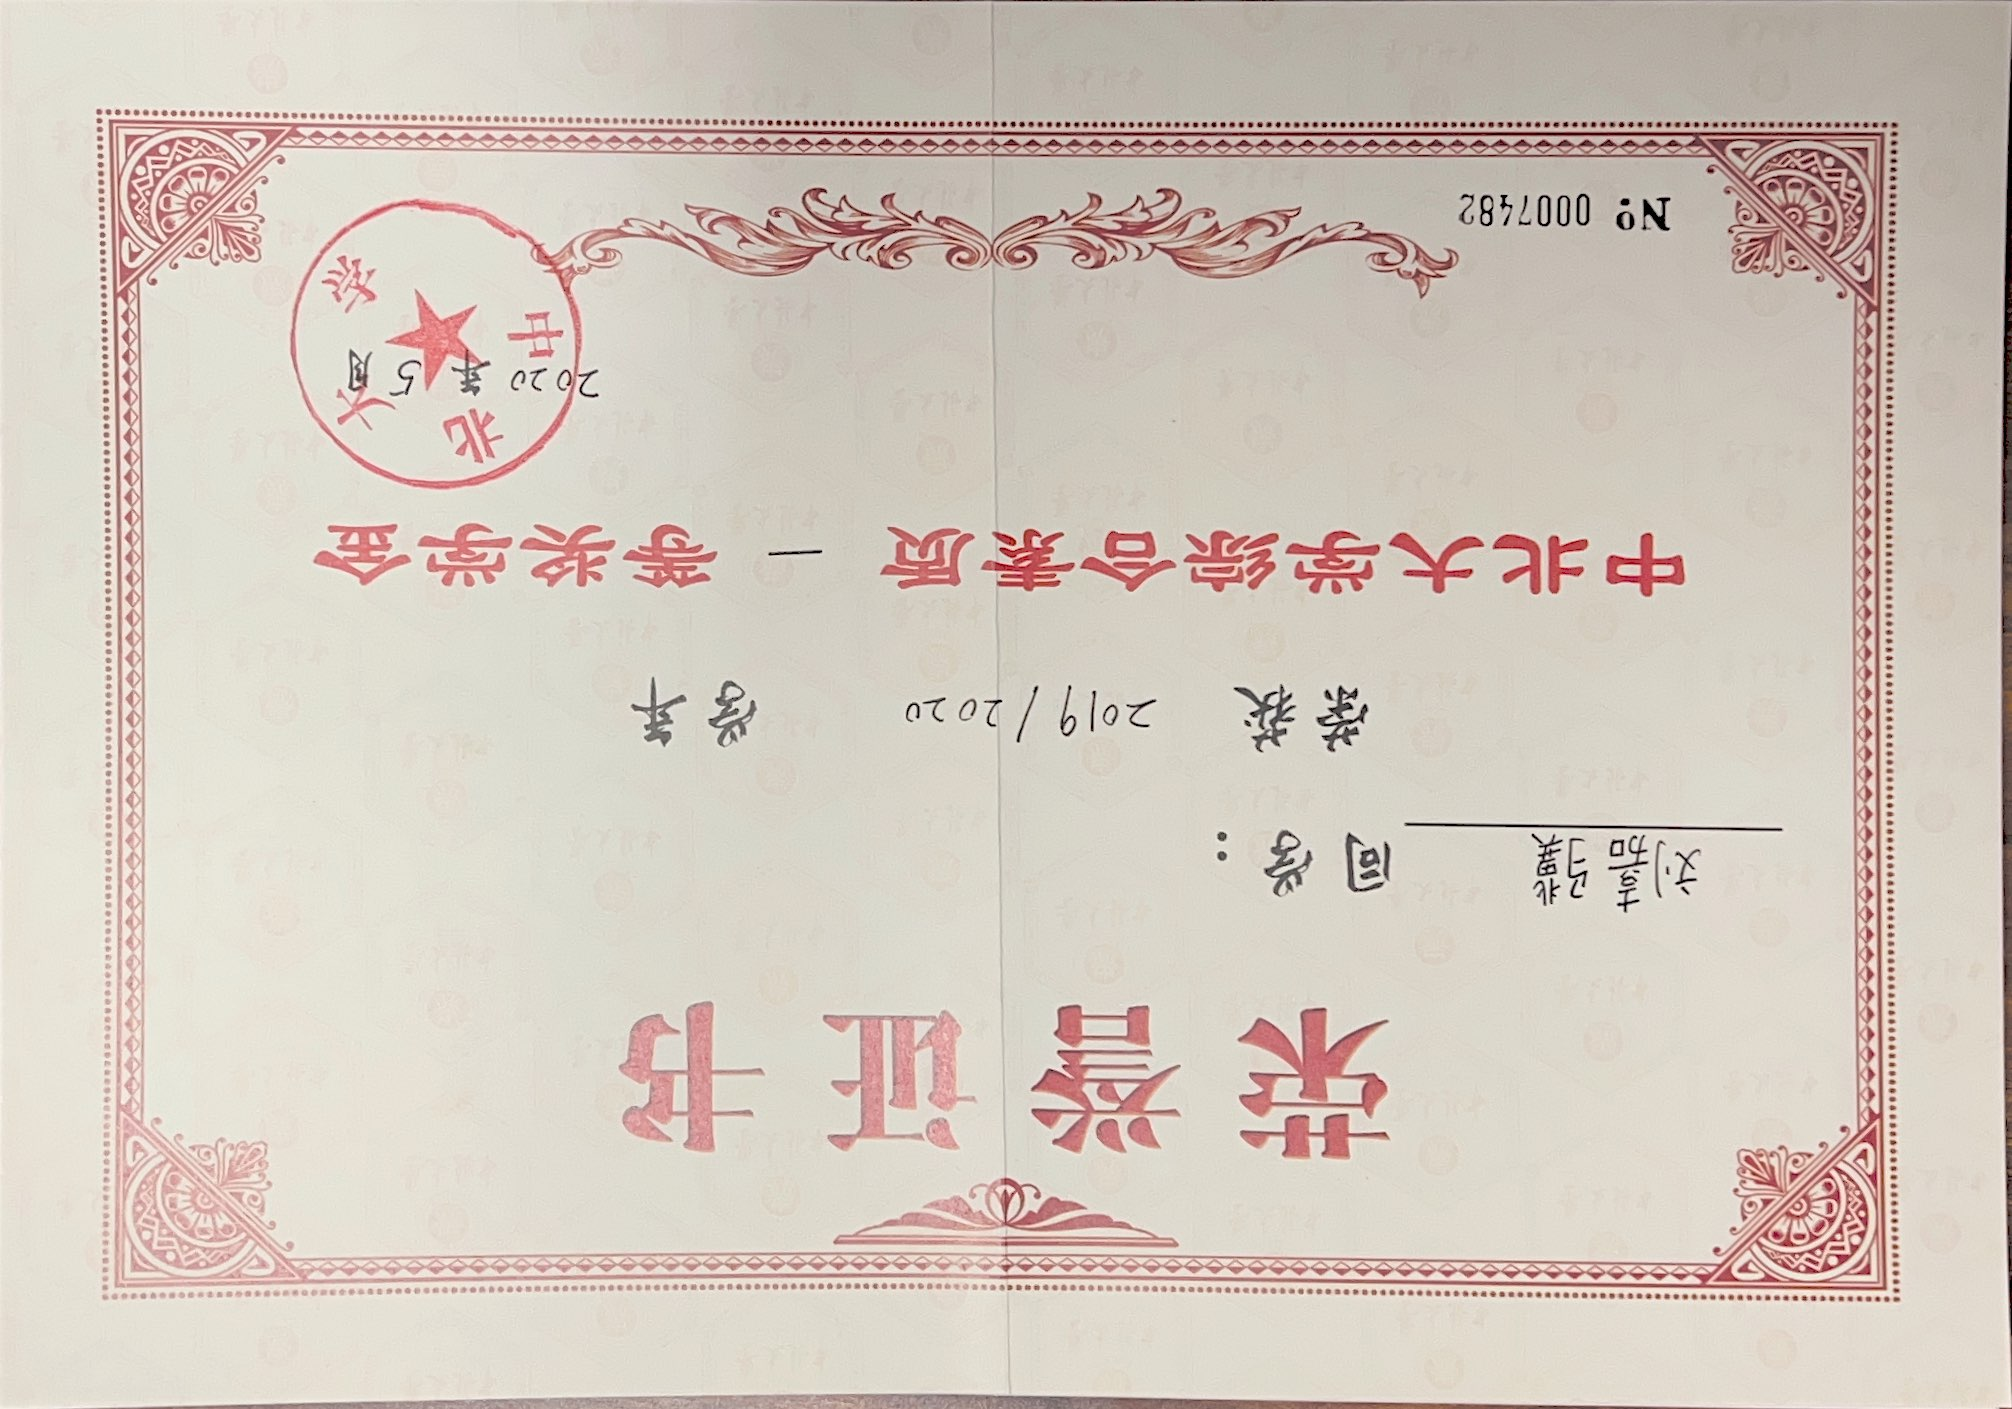 荣誉证书
刘嘉骥 同学：
荣获 2019/2020 学年
中北大学综合素质 一 等奖学金
中北大学
2020年5月
№ 0007482